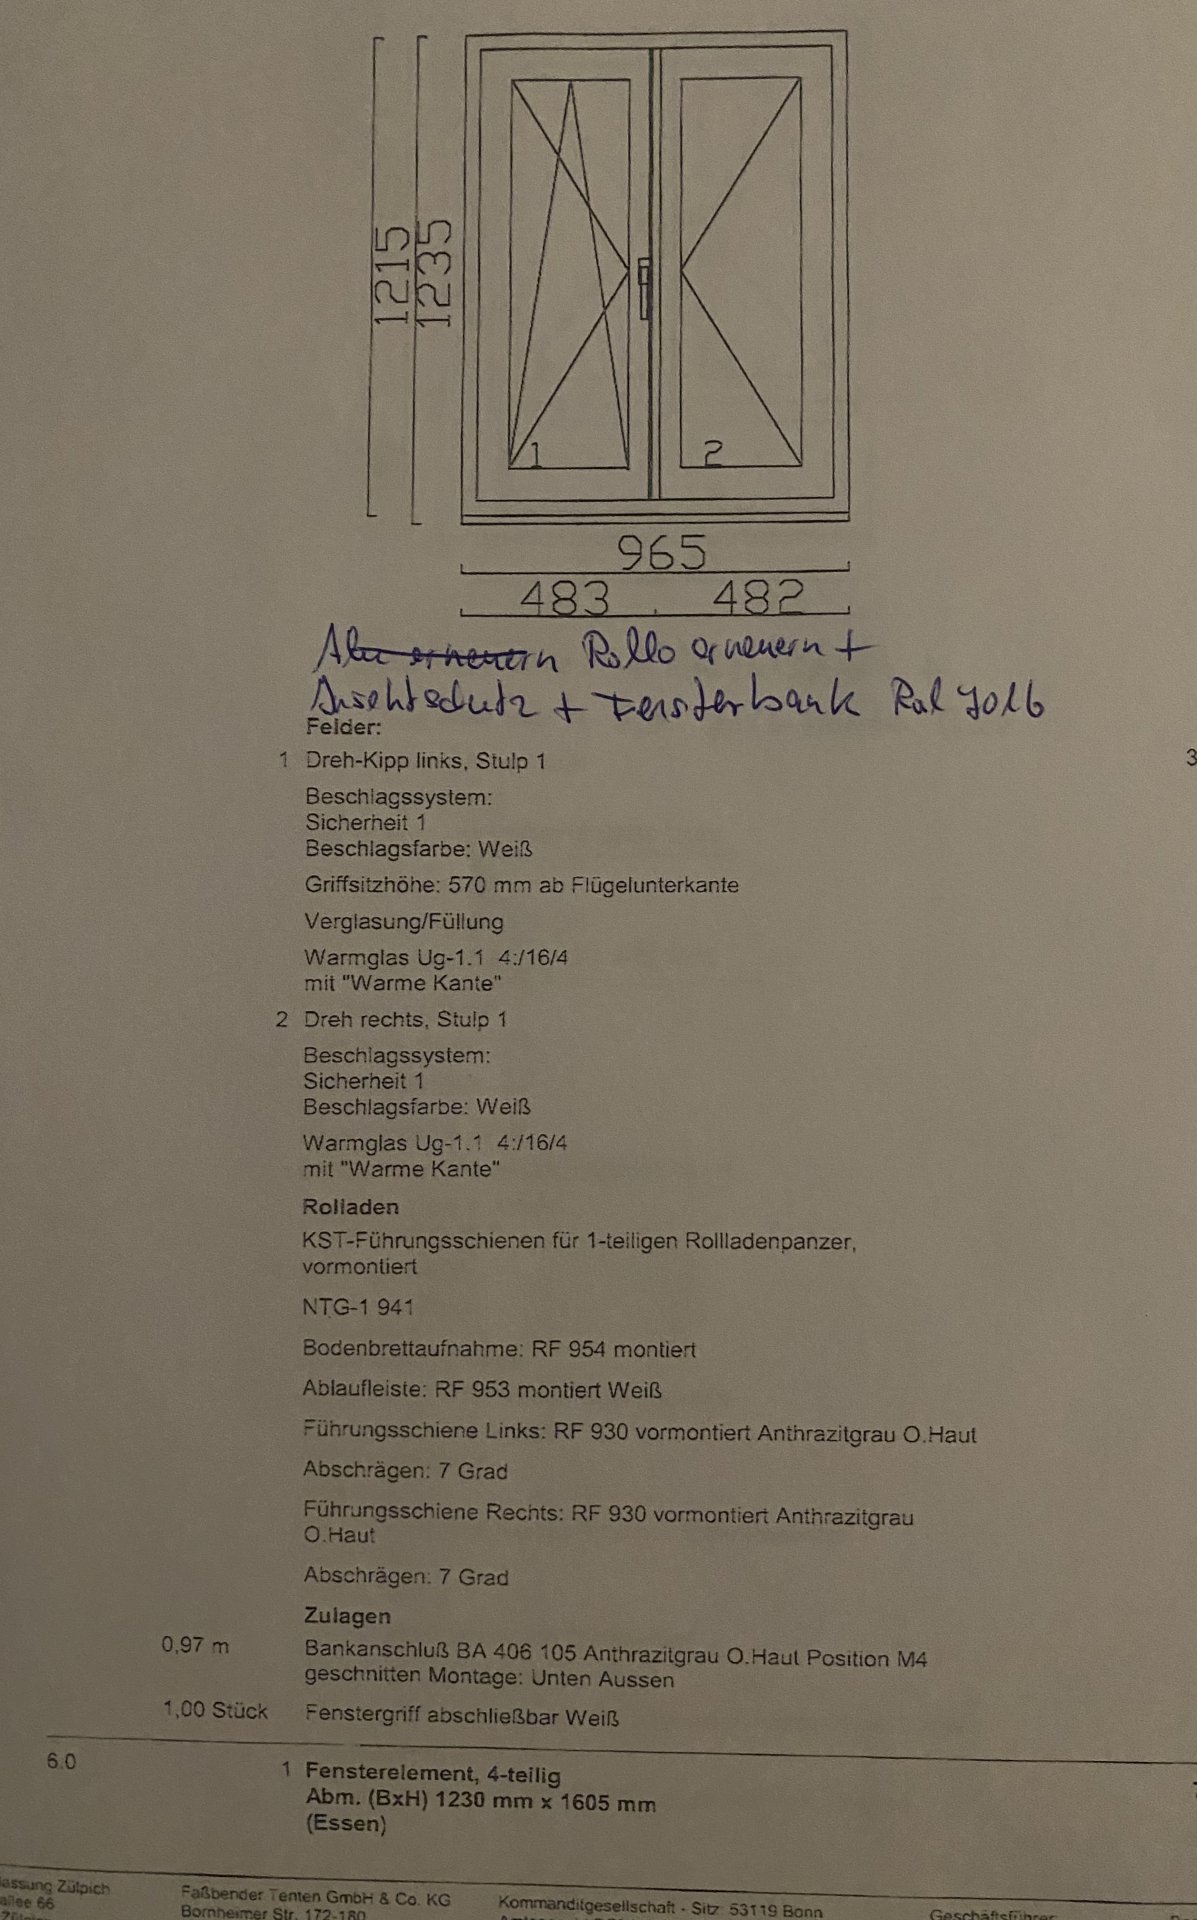 1215
1235
1
2
965
483 482
Alu erneuern Rollo erneuern +
Insektschutz + Fensterbank Ral 7016
Felder:
1 Dreh-Kipp links, Stulp 1
3
Beschlagssystem:
Sicherheit 1
Beschlagsfarbe: Weiß
Griffsitzhöhe: 570 mm ab Flügelunterkante
Verglasung/Füllung
Warmglas Ug-1.1 4:/16/4
mit "Warme Kante"
2 Dreh rechts, Stulp 1
Beschlagssystem:
Sicherheit 1
Beschlagsfarbe: Weiß
Warmglas Ug-1.1 4:/16/4
mit "Warme Kante"
Rolladen
KST-Führungsschienen für 1-teiligen Rollladenpanzer,
vormontiert
NTG-1 941
Bodenbrettaufnahme: RF 954 montiert
Ablaufleiste: RF 953 montiert Weiß
Führungsschiene Links: RF 930 vormontiert Anthrazitgrau O.Haut
Abschrägen: 7 Grad
Führungsschiene Rechts: RF 930 vormontiert Anthrazitgrau
O.Haut
Abschrägen: 7 Grad
Zulagen
0,97 m Bankanschluß BA 406 105 Anthrazitgrau O.Haut Position M4
geschnitten Montage: Unten Aussen
1,00 Stück Fenstergriff abschließbar Weiß
6.0 1 Fensterelement, 4-teilig
Abm. (BxH) 1230 mm x 1605 mm
(Essen)
lassung Zülpich
allee 66
Faßbender Tenten GmbH & Co. KG
Bornheimer Str. 172-180
Kommanditgesellschaft - Sitz: 53119 Bonn
Geschäftsführer: